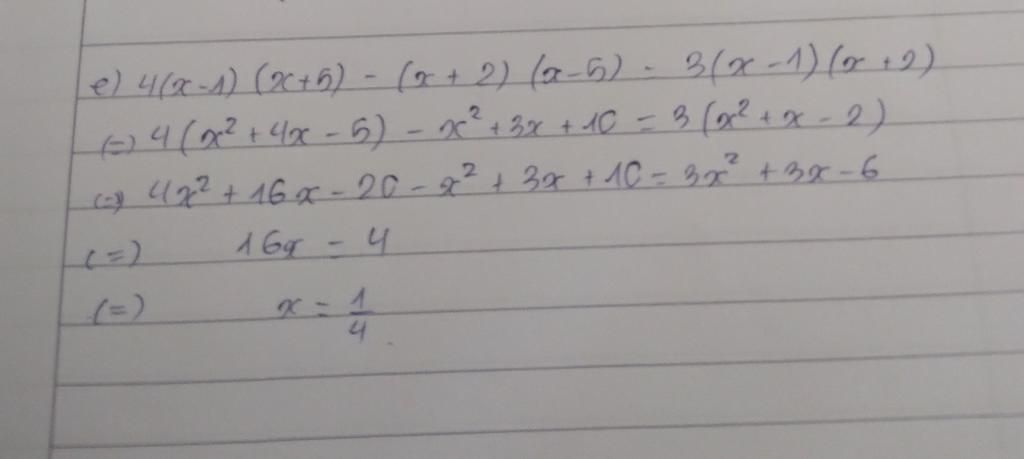 e) 4(x-1) (x+5) - (x+2) (x-5) = 3(x-1)(x+2)
(=) 4(x² + 4x - 5) - x² + 3x + 10 = 3(x² + x - 2)
(=) 4x² + 16x - 20 - x² + 3x + 10 = 3x² + 3x - 6
(=) 16x = 4
(=) x = 1/4